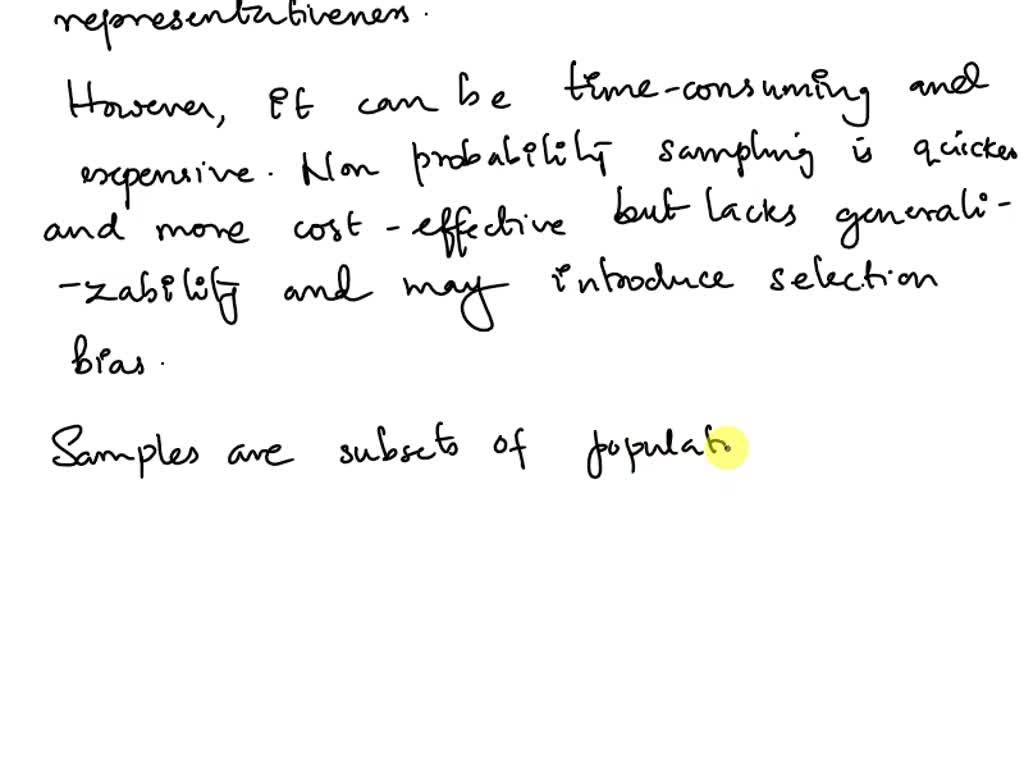 representativeness.
However, it can be time-consuming and
expensive. Non probability sampling is quicker
and more cost-effective but lacks generali-
-zability and may introduce selection
bias.
Samples are subsets of populat